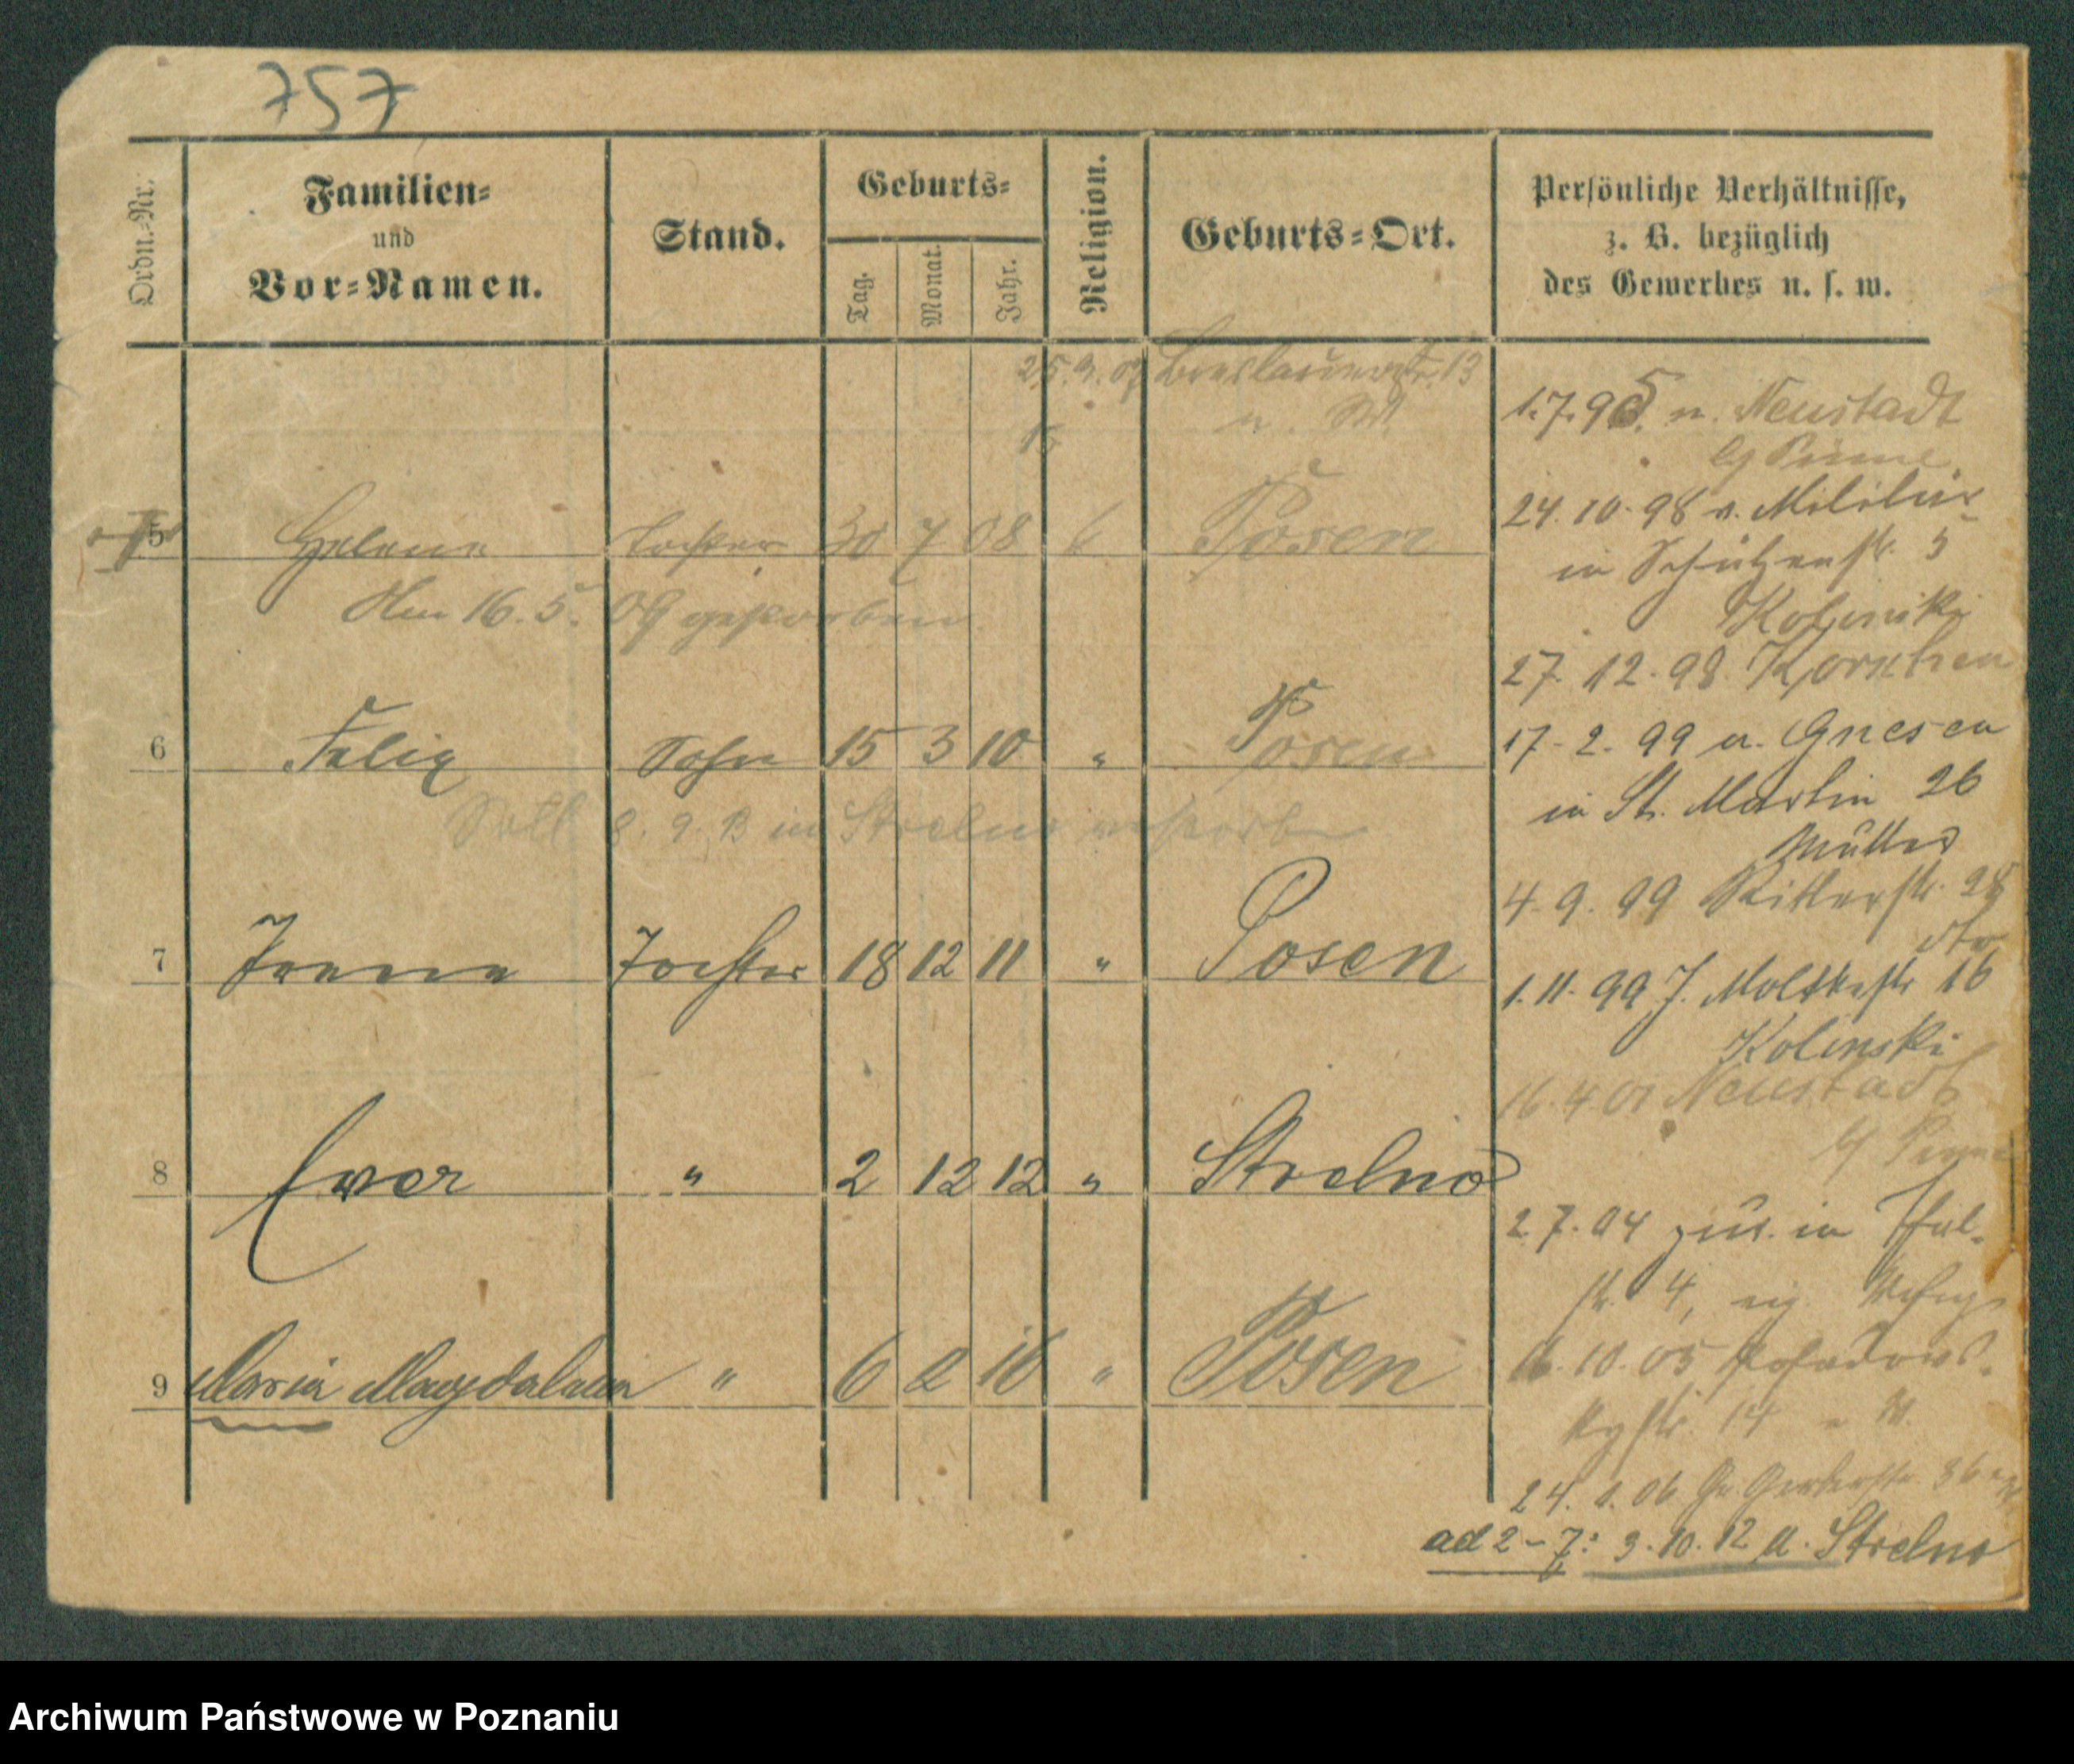 757
Ordn.-Nr.
Familien-
und
Vor-Namen.
Stand.
Geburts-
Tag.
Monat.
Jahr.
Religion.
Geburts-Ort.
Persönliche Verhältnisse,
z. B. bezüglich
des Gewerbes u. s. w.
25. 9. 07 Breslauerstr. 13
15
5 Helene Tochter 30 7 08 k Posen
Am 16. 5. 09 gestorben.
6 Felix Sohn 15 3 10 " Posen
Soll 8. 9. 13 in Strelno verstorben
7 Irene Tochter 18 12 11 " Posen
8 " 2 12 12 " Strelno
9 Maria Magdalena " 6 2 16 " Posen
1. 7. 95. n. Neustadt
b/ Pinne
24. 10. 98 v. Militär
in Schützenstr. 5
Kolinski
27. 12. 98
17. 2. 99 a. Gnesen
in St. Martin 26
Müller
4. 9. 99 Ritterstr.
1. 11. 99 J. Moltkestr 16
Kolinski
16. 4. 01 Neustadt
b/ Pinne
2. 7. 04 zur. in
str. 4, eig.
16. 10. 05 Posadows-
kystr. 14 u. W.
24. 1. 06 Gr. Gerberstr. 36
ad 2-7: 3. 10. 12 a. Strelno
Archiwum Państwowe w Poznaniu